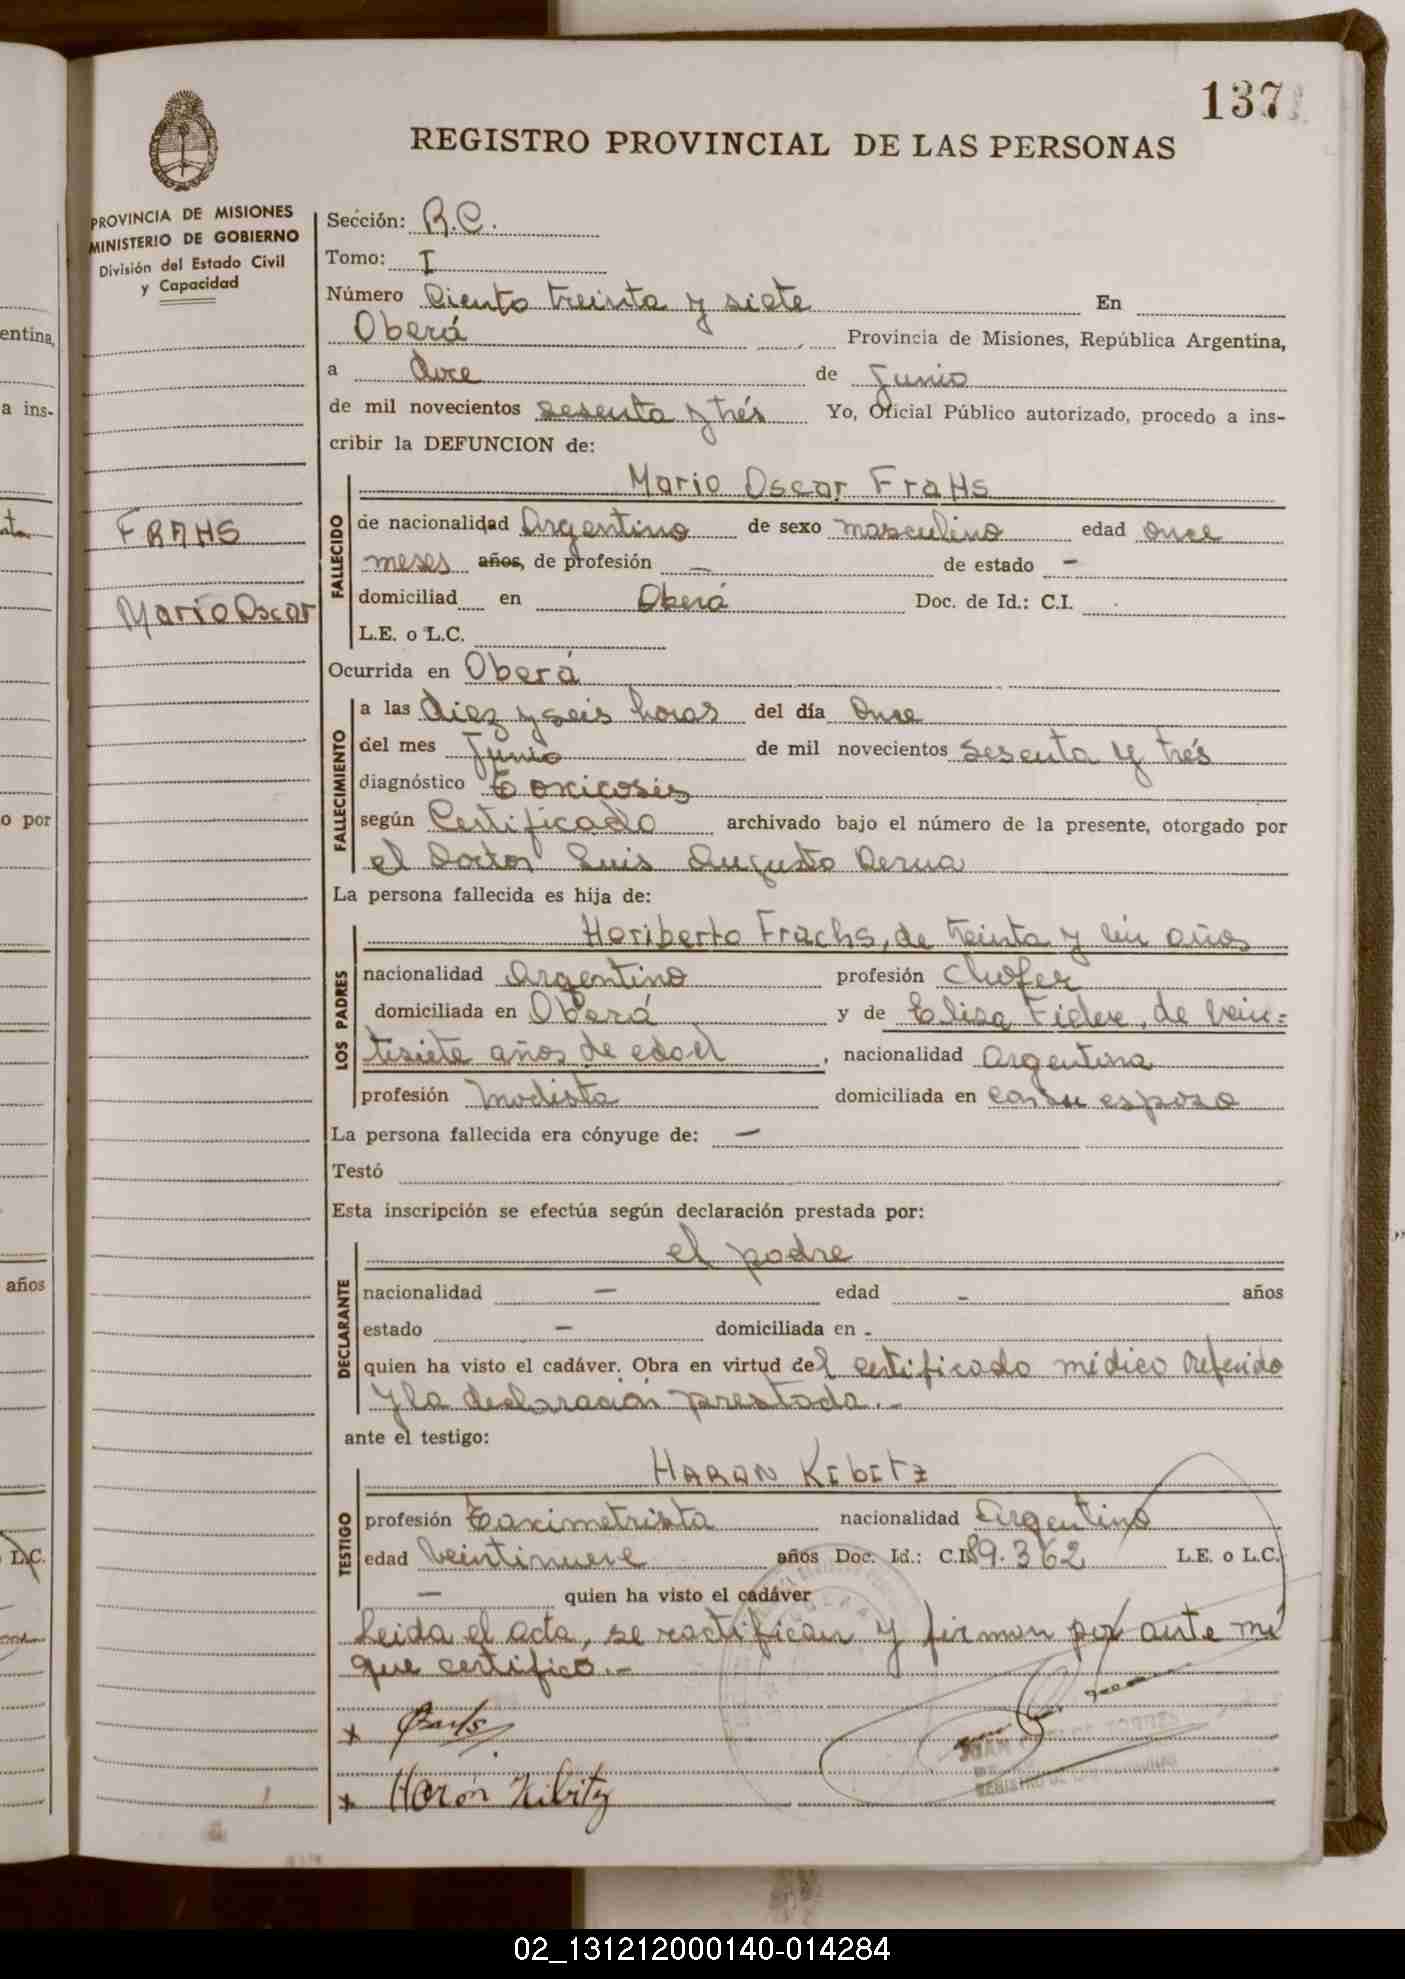 137
REGISTRO PROVINCIAL DE LAS PERSONAS
PROVINCIA DE MISIONES
MINISTERIO DE GOBIERNO
División del Estado Civil
y Capacidad
FRAHS
Mario Oscar
Sección: R.C.
Tomo: I
Número Ciento treinta y siete En
Oberá Provincia de Misiones, República Argentina,
a doce de Junio
de mil novecientos sesenta y trés Yo, Oficial Público autorizado, procedo a ins-
cribir la DEFUNCION de:
Mario Oscar FraHs
FALLECIDO
de nacionalidad Argentino de sexo masculino edad once
meses años, de profesión — de estado —
domiciliad en Oberá Doc. de Id.: C.I.
L.E. o L.C.
Ocurrida en Oberá
FALLECIMIENTO
a las diez y seis horas del día once
del mes Junio de mil novecientos sesenta y trés
diagnóstico Toxicosis
según Certificado archivado bajo el número de la presente, otorgado por
el Doctor Luis Augusto
La persona fallecida es hija de:
LOS PADRES
Heriberto Frachs, de treinta y un años
nacionalidad Argentino profesión Chofer
domiciliada en Oberá y de Elisa de vein=
tisiete años de edad, nacionalidad Argentina
profesión Modista domiciliada en con su esposo
La persona fallecida era cónyuge de: —
Testó
Esta inscripción se efectúa según declaración prestada por:
DECLARANTE
el padre
nacionalidad — edad — años
estado — domiciliada en -
quien ha visto el cadáver. Obra en virtud del certificado médico referido
y la declaración prestada.-
ante el testigo:
TESTIGO
HARON KIBITZ
profesión Taximetrista nacionalidad Argentino
edad Veintinueve años Doc. Id.: C.I. 89.362 L.E. o L.C.
— quien ha visto el cadáver
Leida el acta, se ractifican y firman por ante mi
que certifico.-
x
x Harón Kibitz
JUAN CARLOS TORRES
entina,
a ins-
o por
años
L.C.
02_131212000140-014284